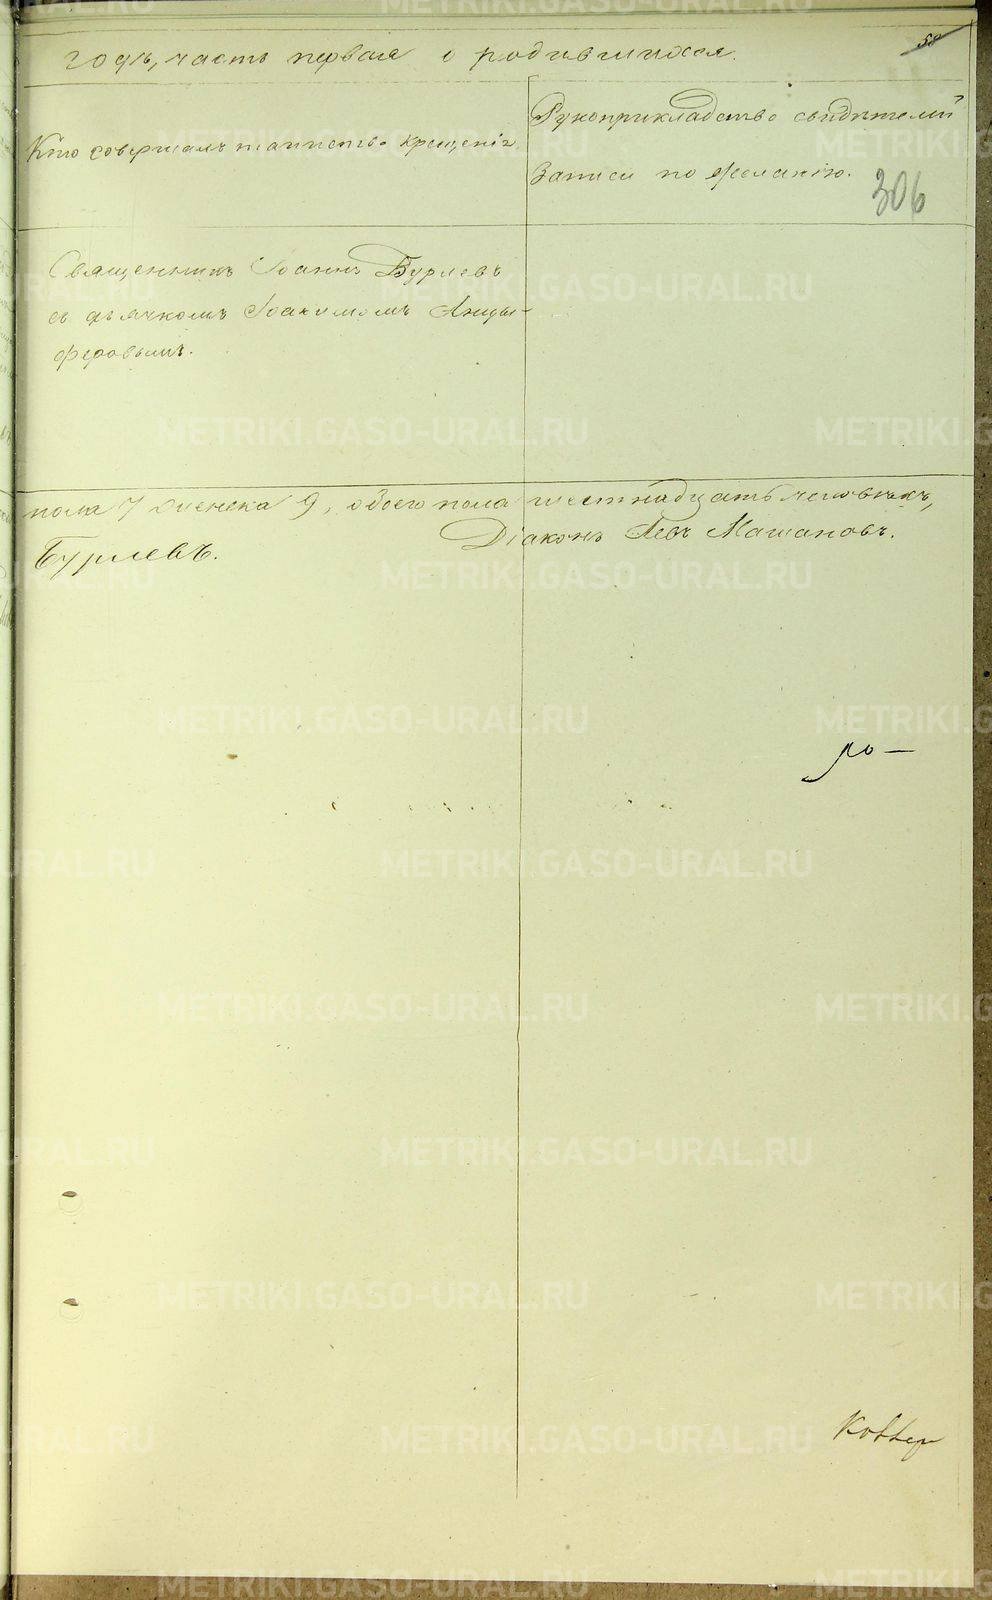 58
годъ, часть первая о родившихся.
Кто совершалъ таинство крещенія
Рукоприкладство свидѣтелей
записи по желанію.
306
Священникъ Іоаннъ Бурлевъ
съ дьячкомъ Іоакимомъ Анцы-
феровымъ.
пола 7 женска 9, обоего пола шестнадцать человѣкъ,
Бурлевъ. Діаконъ Левъ Машановъ.
METRIKI.GASO-URAL.RU